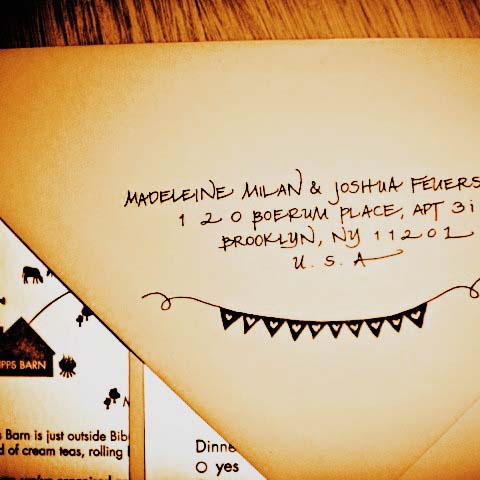 MADELEINE MILAN & JOSHUA FEUERS
120 BOERUM PLACE, APT 3i
BROOKLYN, NY 11201
U.S.A
PPS BARN
s Barn is just outside Bib
d of cream teas, rolling
Dinne
O yes